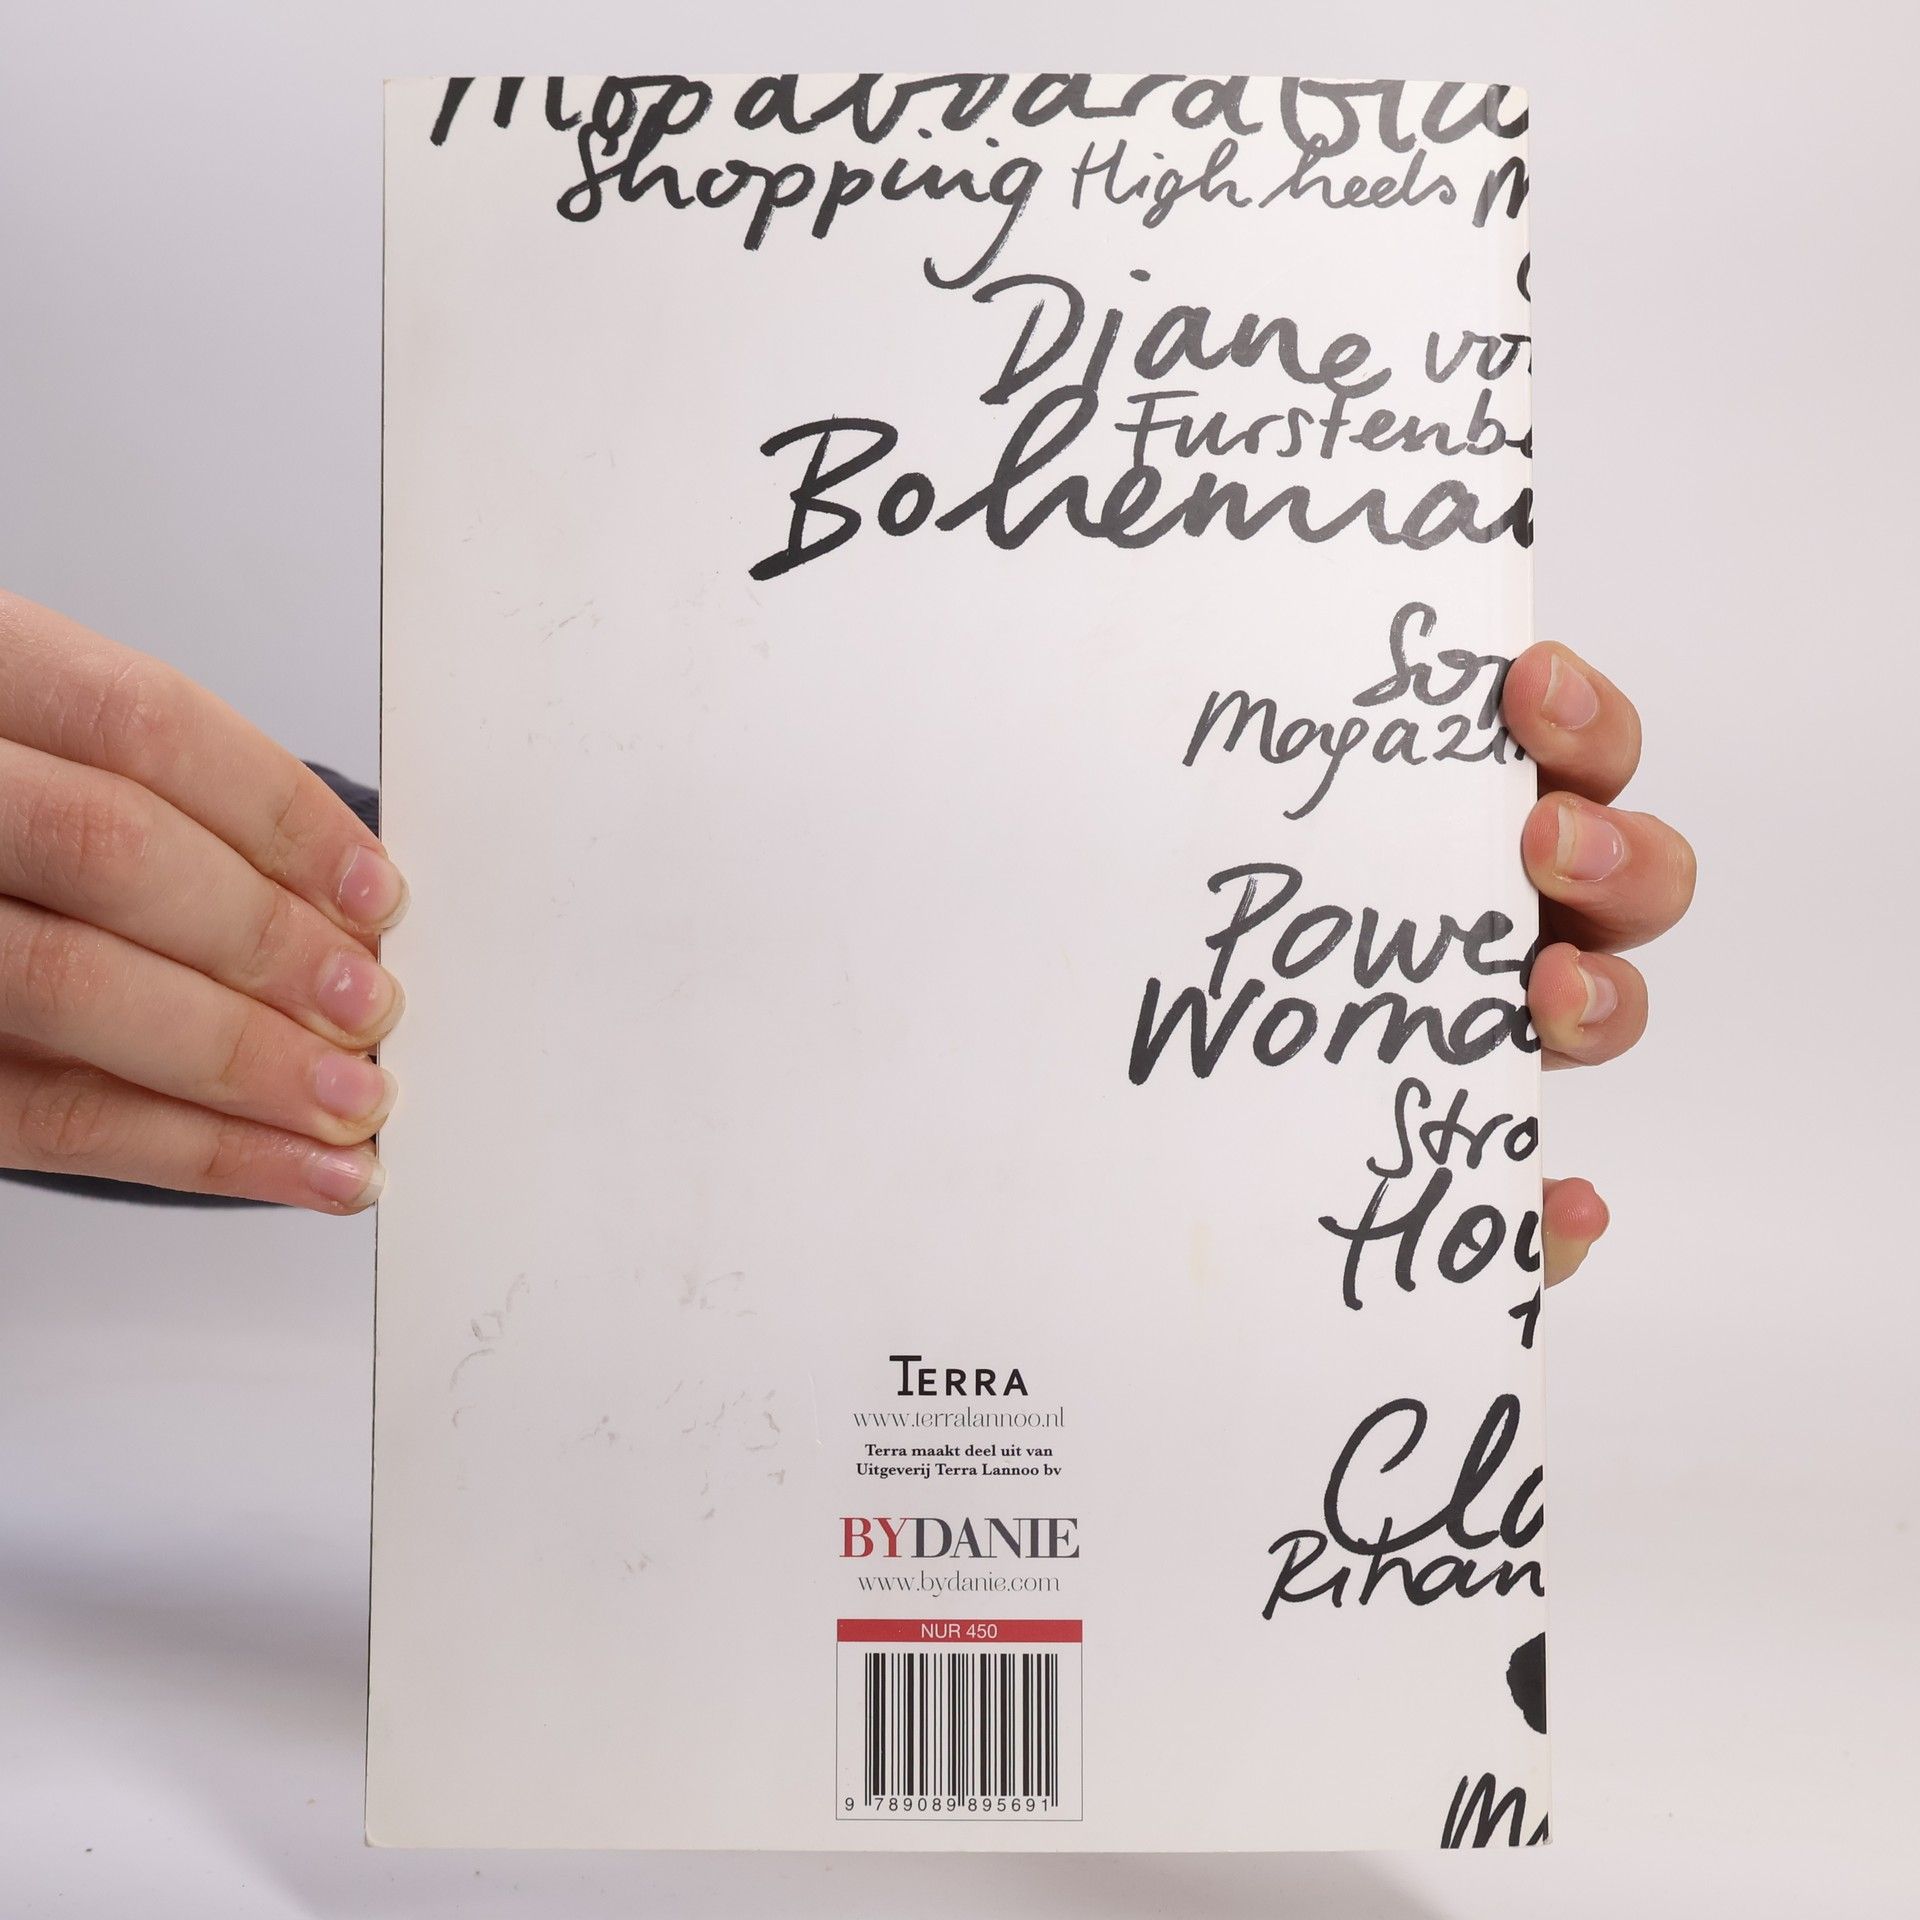 Moodboard
Shopping High heels
Diane
Furstenb
Bohemian
Magazin
Powe
Woma
Stro
Cla
Rihan
TERRA
www.terralannoo.nl
Terra maakt deel uit van
Uitgeverij Terra Lannoo bv
BYDANIE
www.bydanie.com
NUR 450
9 789089 895691